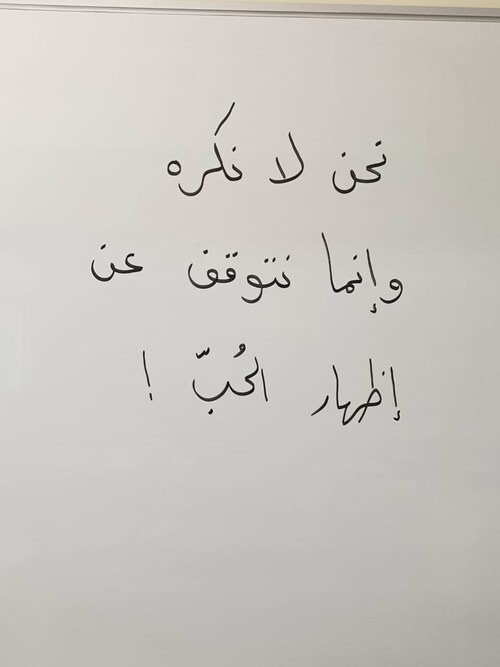 نحن لا نكره
وإنما نتوقف عن
إظهار الحُبّ !